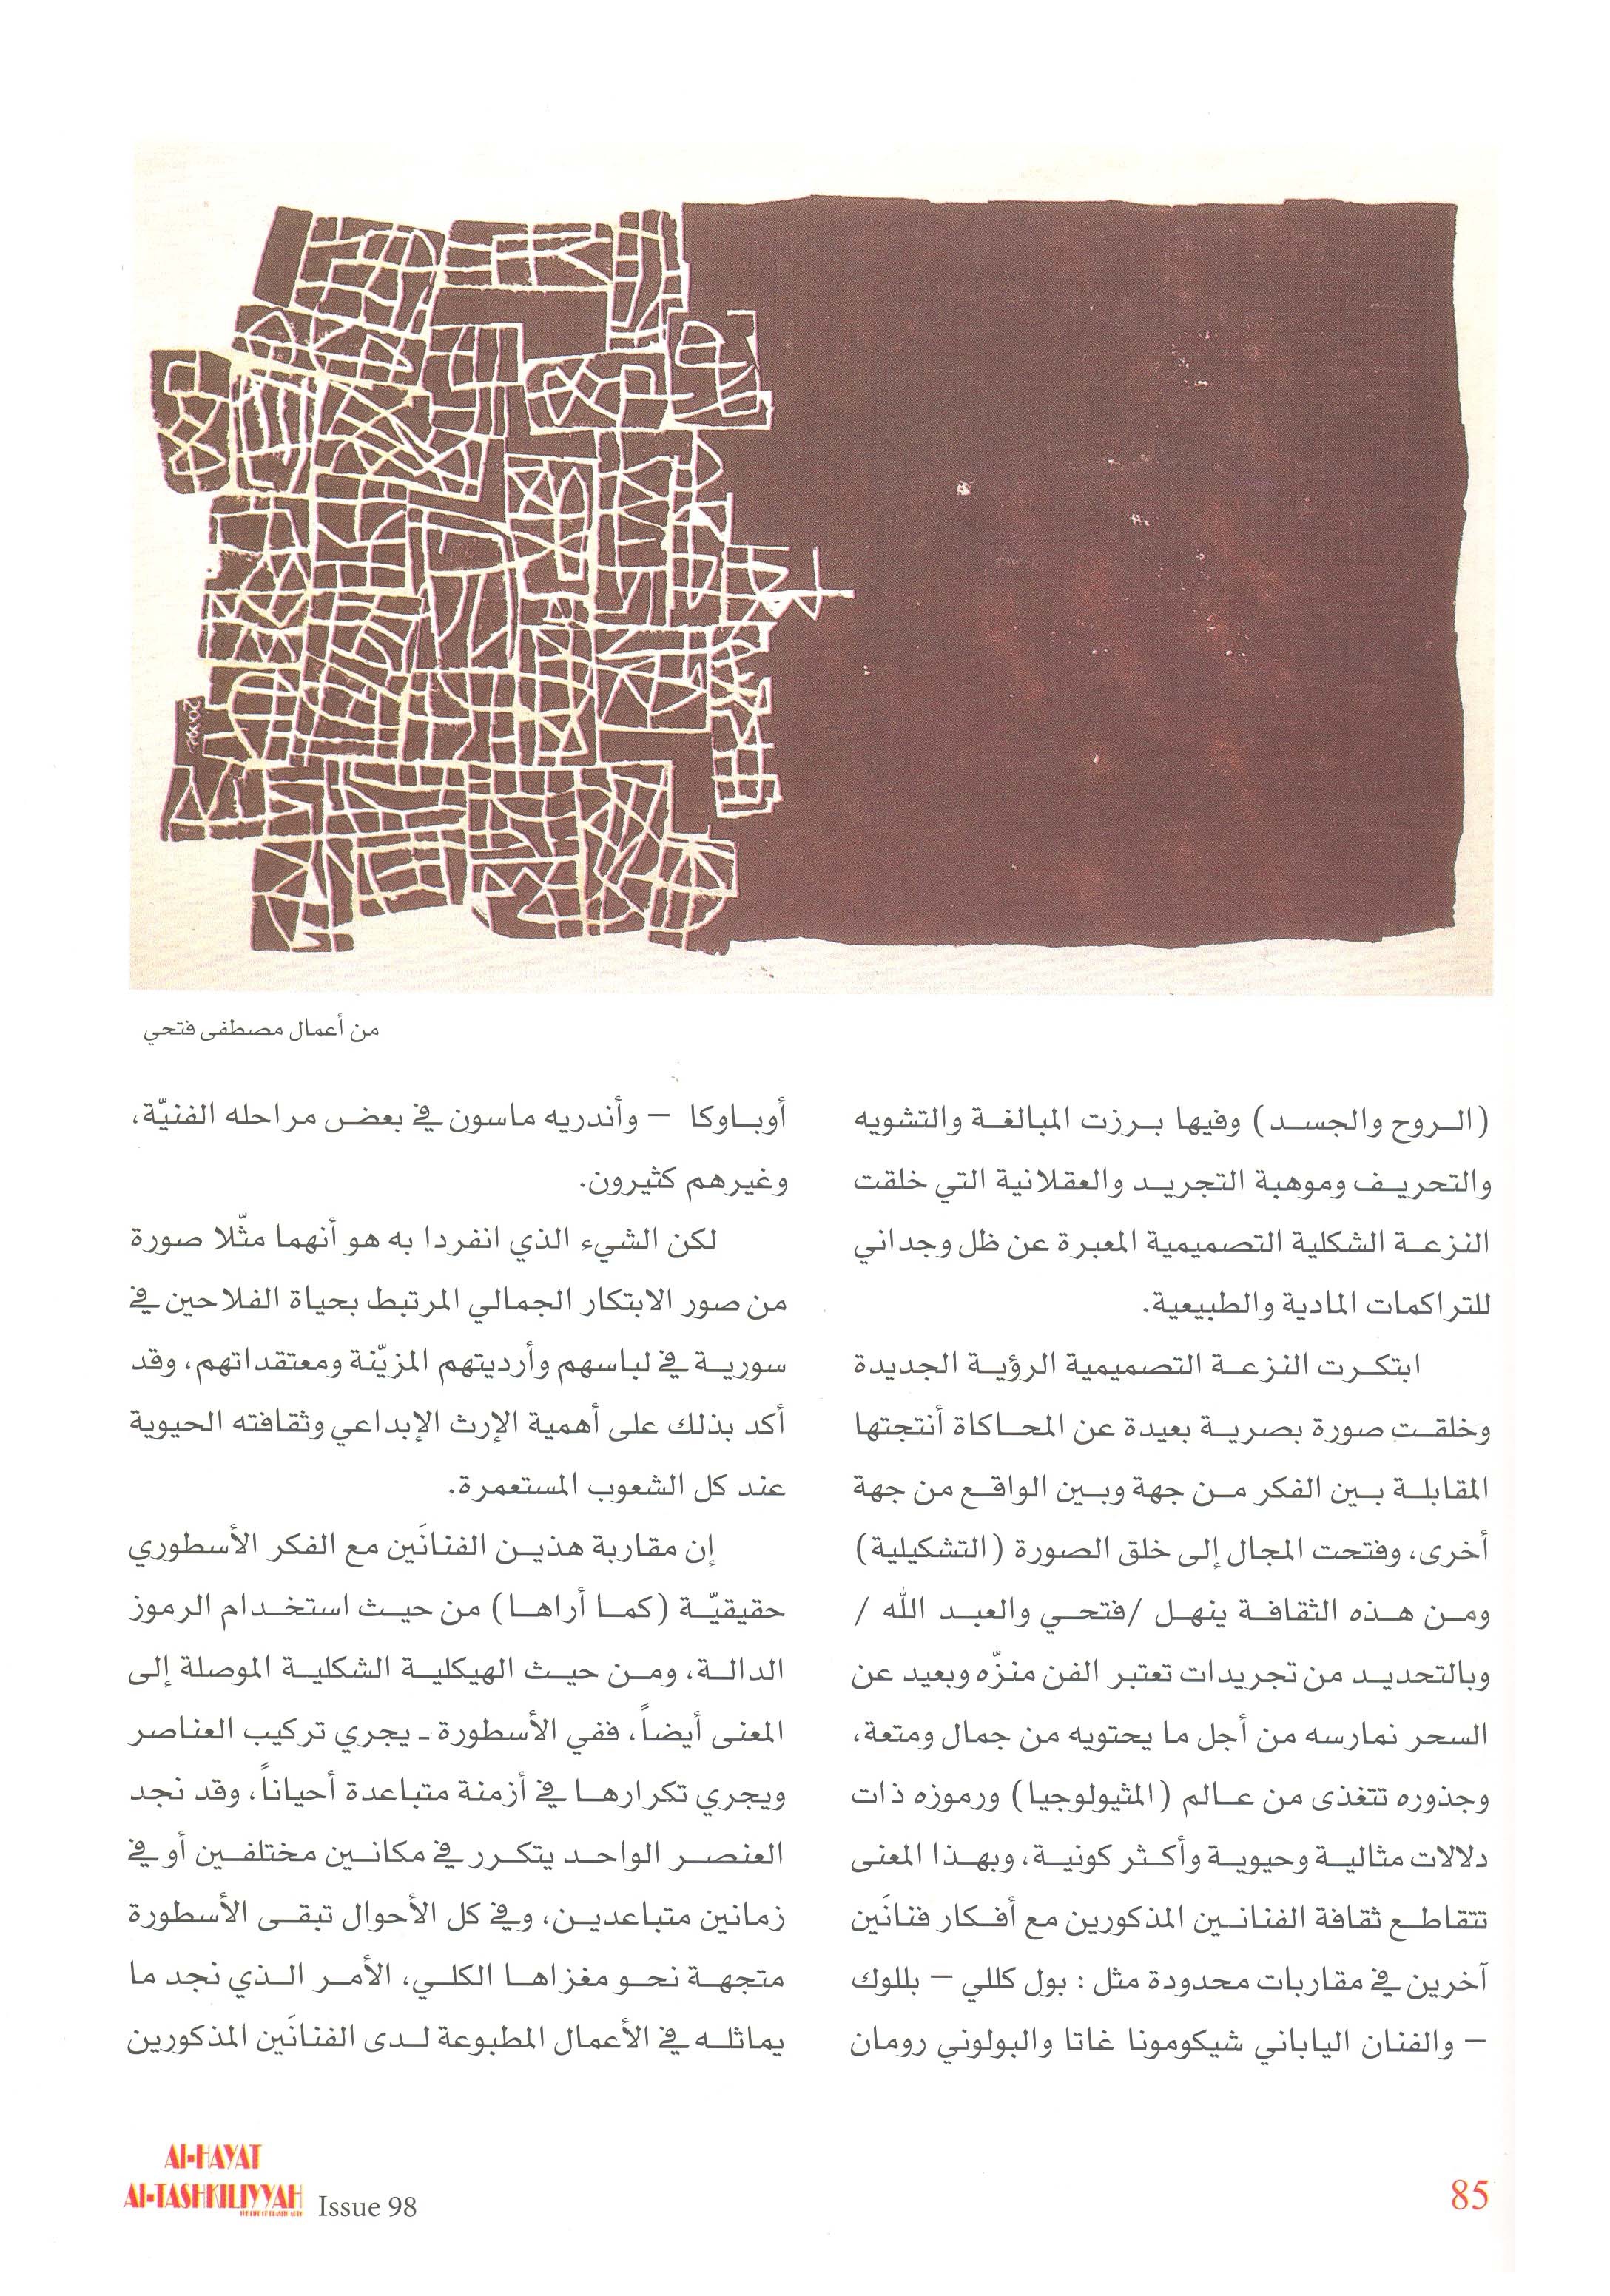 من أعمال مصطفى فتحي
(الروح والجسد) وفيها برزت المبالغة والتشويه
والتحريف وموهبة التجريد والعقلانية التي خلقت
النزعة الشكلية التصميمية المعبرة عن ظل وجداني
للتراكمات المادية والطبيعية.
ابتكرت النزعة التصميمية الرؤية الجديدة
وخلقت صورة بصرية بعيدة عن المحاكاة أنتجتها
المقابلة بين الفكر من جهة وبين الواقع من جهة
أخرى، وفتحت المجال إلى خلق الصورة (التشكيلية)
ومن هذه الثقافة ينهل /فتحي والعبد الله /
وبالتحديد من تجريدات تعتبر الفن منزّه وبعيد عن
السحر نمارسه من أجل ما يحتويه من جمال ومتعة،
وجذوره تتغذى من عالم (المثيولوجيا) ورموزه ذات
دلالات مثالية وحيوية وأكثر كونية، وبهذا المعنى
تتقاطع ثقافة الفنانين المذكورين مع أفكار فنانَين
آخرين في مقاربات محدودة مثل : بول كللي – بللوك
– والفنان الياباني شيكومونا غاتا والبولوني رومان
أوباوكا – وأندريه ماسون في بعض مراحله الفنيّة،
وغيرهم كثيرون.
لكن الشيء الذي انفردا به هو أنهما مثّلا صورة
من صور الابتكار الجمالي المرتبط بحياة الفلاحين في
سورية في لباسهم وأرديتهم المزيّنة ومعتقداتهم، وقد
أكد بذلك على أهمية الإرث الإبداعي وثقافته الحيوية
عند كل الشعوب المستعمرة.
إن مقاربة هذين الفنانَين مع الفكر الأسطوري
حقيقيّة (كما أراها) من حيث استخدام الرموز
الدالة، ومن حيث الهيكلية الشكلية الموصلة إلى
المعنى أيضاً، ففي الأسطورة ـ يجري تركيب العناصر
ويجري تكرارها في أزمنة متباعدة أحياناً، وقد نجد
العنصر الواحد يتكرر في مكانين مختلفين أو في
زمانين متباعدين، وفي كل الأحوال تبقى الأسطورة
متجهة نحو مغزاها الكلي، الأمر الذي نجد ما
يماثله في الأعمال المطبوعة لدى الفنانَين المذكورين
Al-HAYAT
Al-TASHKILIYYAH
Issue 98
85